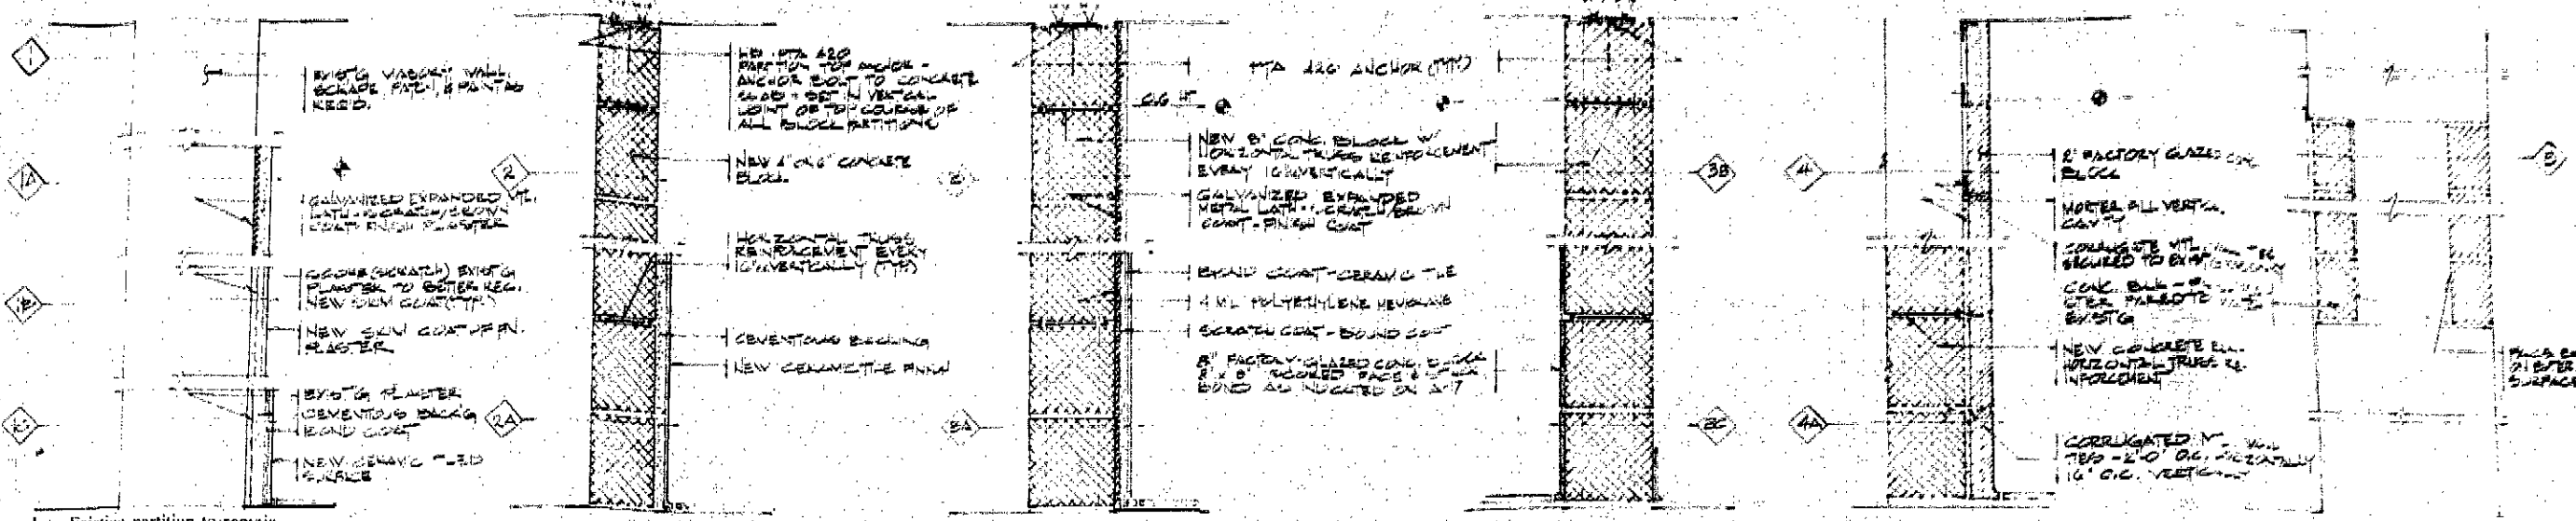 1
EXIST'G MASONRY WALL,
SCRAPE, PATCH, & PAINT AS
REQ'D.
1A
GALVANIZED EXPANDED MTL.
LATH - SCRATCH/BROWN
COAT-FINISH PLASTER
1B
SCORE (SCRATCH) EXIST'G
PLASTER TO BETTER REC.
NEW SKIM COAT (TYP.)
NEW SKIM COAT OF FIN.
PLASTER
EXIST'G PLASTER
CEMENTOUS BACK'G
BOND COAT
NEW CERAMIC TILED
SURFACE
1. Existing partition to remain
2
PARTITION TOP ANCHOR -
ANCHOR BOLT TO CONCRETE
SLAB - SET IN VERTICAL
JOINT OF TOP COURSE OF
ALL BLOCK PARTITIONS
NEW 4" OR 6" CONCRETE
BLOCK
HORIZONTAL TRUSS
REINFORCEMENT EVERY
16" VERTICALLY (TYP)
2A
CEMENTOUS BACKING
NEW CERAMIC TILE FINISH
PTA 420 ANCHOR (TYP)
NEW 8" CONC. BLOCK W/
HORIZONTAL TRUSS REINFORCEMENT
EVERY 16" VERTICALLY
GALVANIZED EXPANDED
METAL LATH - SCRATCH/BROWN
COAT-FINISH COAT
BOND COAT-CERAMIC TILE
4 MIL POLYETHYLENE MEMBRANE
SCRATCH COAT - BOUND COAT
3A
8" FACTORY GLAZED CONC. BLOCK
8" x 8" SCORED FACE & STACK
BOND AS INDICATED ON A-7
3B
3C
4
2" FACTORY GLAZED CONC.
BLOCK
MORTER FILL VERTICAL
CAVITY
CORRUGATE MTL
SECURED TO EXIST'G
CONC. BLK
EXIST'G
NEW CONCRETE BLK.
HORIZONTAL TRUSS RE-
INFORCEMENT
4A
CORRUGATED MTL. WALL
TIES - 2'-0" O.C. HORIZONTALLY
16" O.C. VERTICALLY
SURFACE